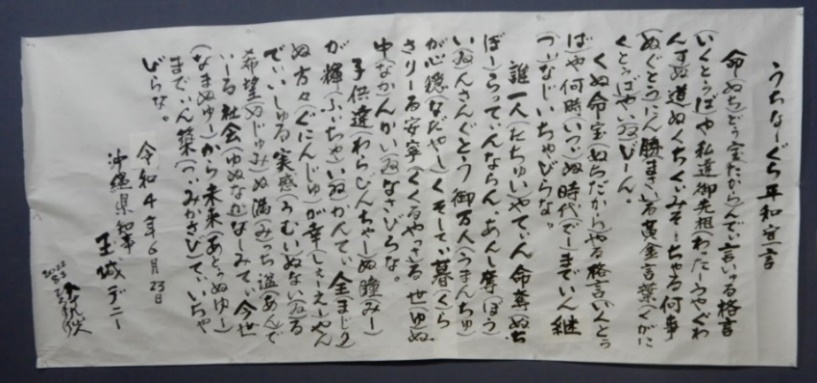 うちなーぐち平和宣言
命(ぬち)どぅ宝(たから)んでぃ言いる格言
(いくとぅば)や私達御先祖(わったーうやぐわ
んす)ぬ道ぬくちくぃみそーちゃる何事
(ぬぐとぅ)ん勝まさいる黄金言葉(くがに
くとぅば)やいびーん。
くぬ命宝(ぬちだから)やる格言(いくとぅ
ば)や何時(いつ)ぬ時代でーまでぃん継
(つ)なじいちゃびらな。
誰一人(たちゅい)やてぃん命奪(ぬち
ぼー)らってぃんならん、あんし奪(ぼう)
いんさんぐとぅ御万人(うまんちゅ)
が心穏(なだや)くそーてぃ暮くら
さりーる安寧(くくるやっさ)る世(ゆ)ぬ
中(なか)んかいなさびらな。
子供達(わらびんちゃー)ぬ瞳(みー)
が輝(ふぃちゃ)いかんてぃ全(まじり)
ぬ方々(ぐにんじゅ)が幸(しえー)やん
でぃいしゅる実感(うむい)ぬないる
希望(ぬじゅみ)ぬ満(み)っち溢(あん)で
ぃーる社会(ゆぬなか)なーみてぃ、今世
(なまぬゆー)から未来(あとぅぬゆー)
までぃん築(つ)みかさびてぃいちゃ
びらな。
令和4年6月23日
沖縄県知事
玉城デニー
2022